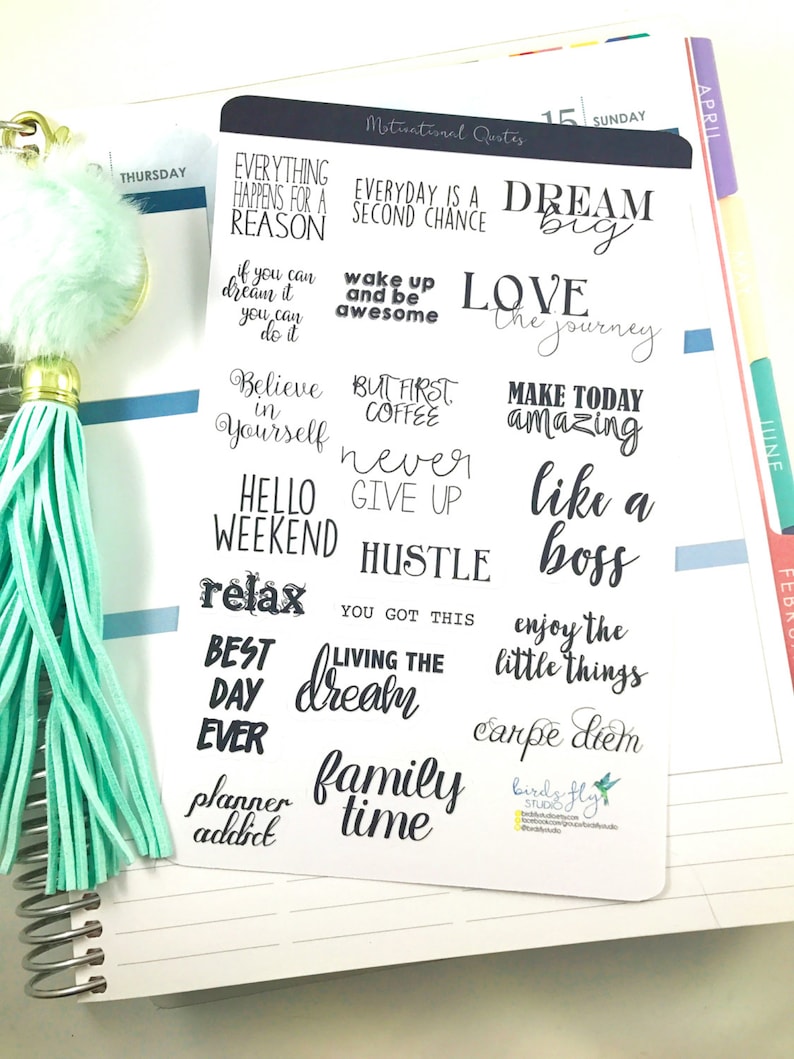 Motivational Quotes
15
SUNDAY
THURSDAY
APRIL
MAY
JUNE
EVERYTHING
HAPPENS FOR A
REASON
EVERYDAY IS A
SECOND CHANCE
DREAM
big
if you can
dream it
you can
do it
wake up
and be
awesome
LOVE
the journey
Believe
in
Yourself
BUT FIRST,
COFFEE
MAKE TODAY
amazing
never
GIVE UP
HELLO
WEEKEND
like a
boss
HUSTLE
relax
YOU GOT THIS
enjoy the
little things
BEST
DAY
EVER
LIVING THE
dream
carpe diem
family
time
planner
addict
birds fly
STUDIO
birdsflystudio.etsy.com
facebook.com/groups/birdsflystudio
@birdsflystudio